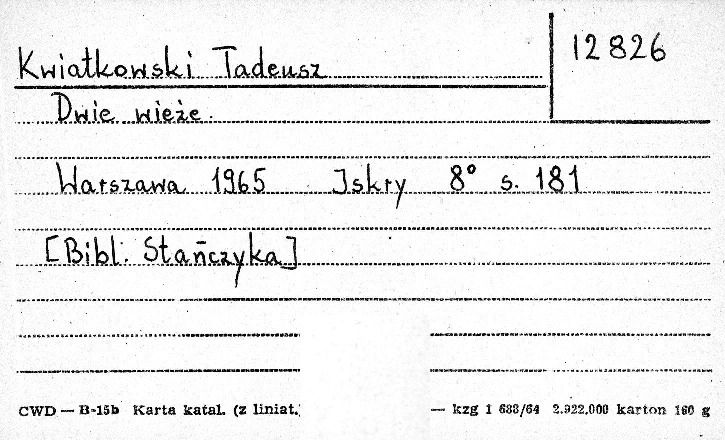 12826
Kwiatkowski Tadeusz
Dwie wieże.
Warszawa 1965 Iskry 8° s. 181
[Bibl. Stańczyka]
CWD — B-15b Karta katal. (z liniat. — kzg 1 633/64 2.922.000 karton 160 g